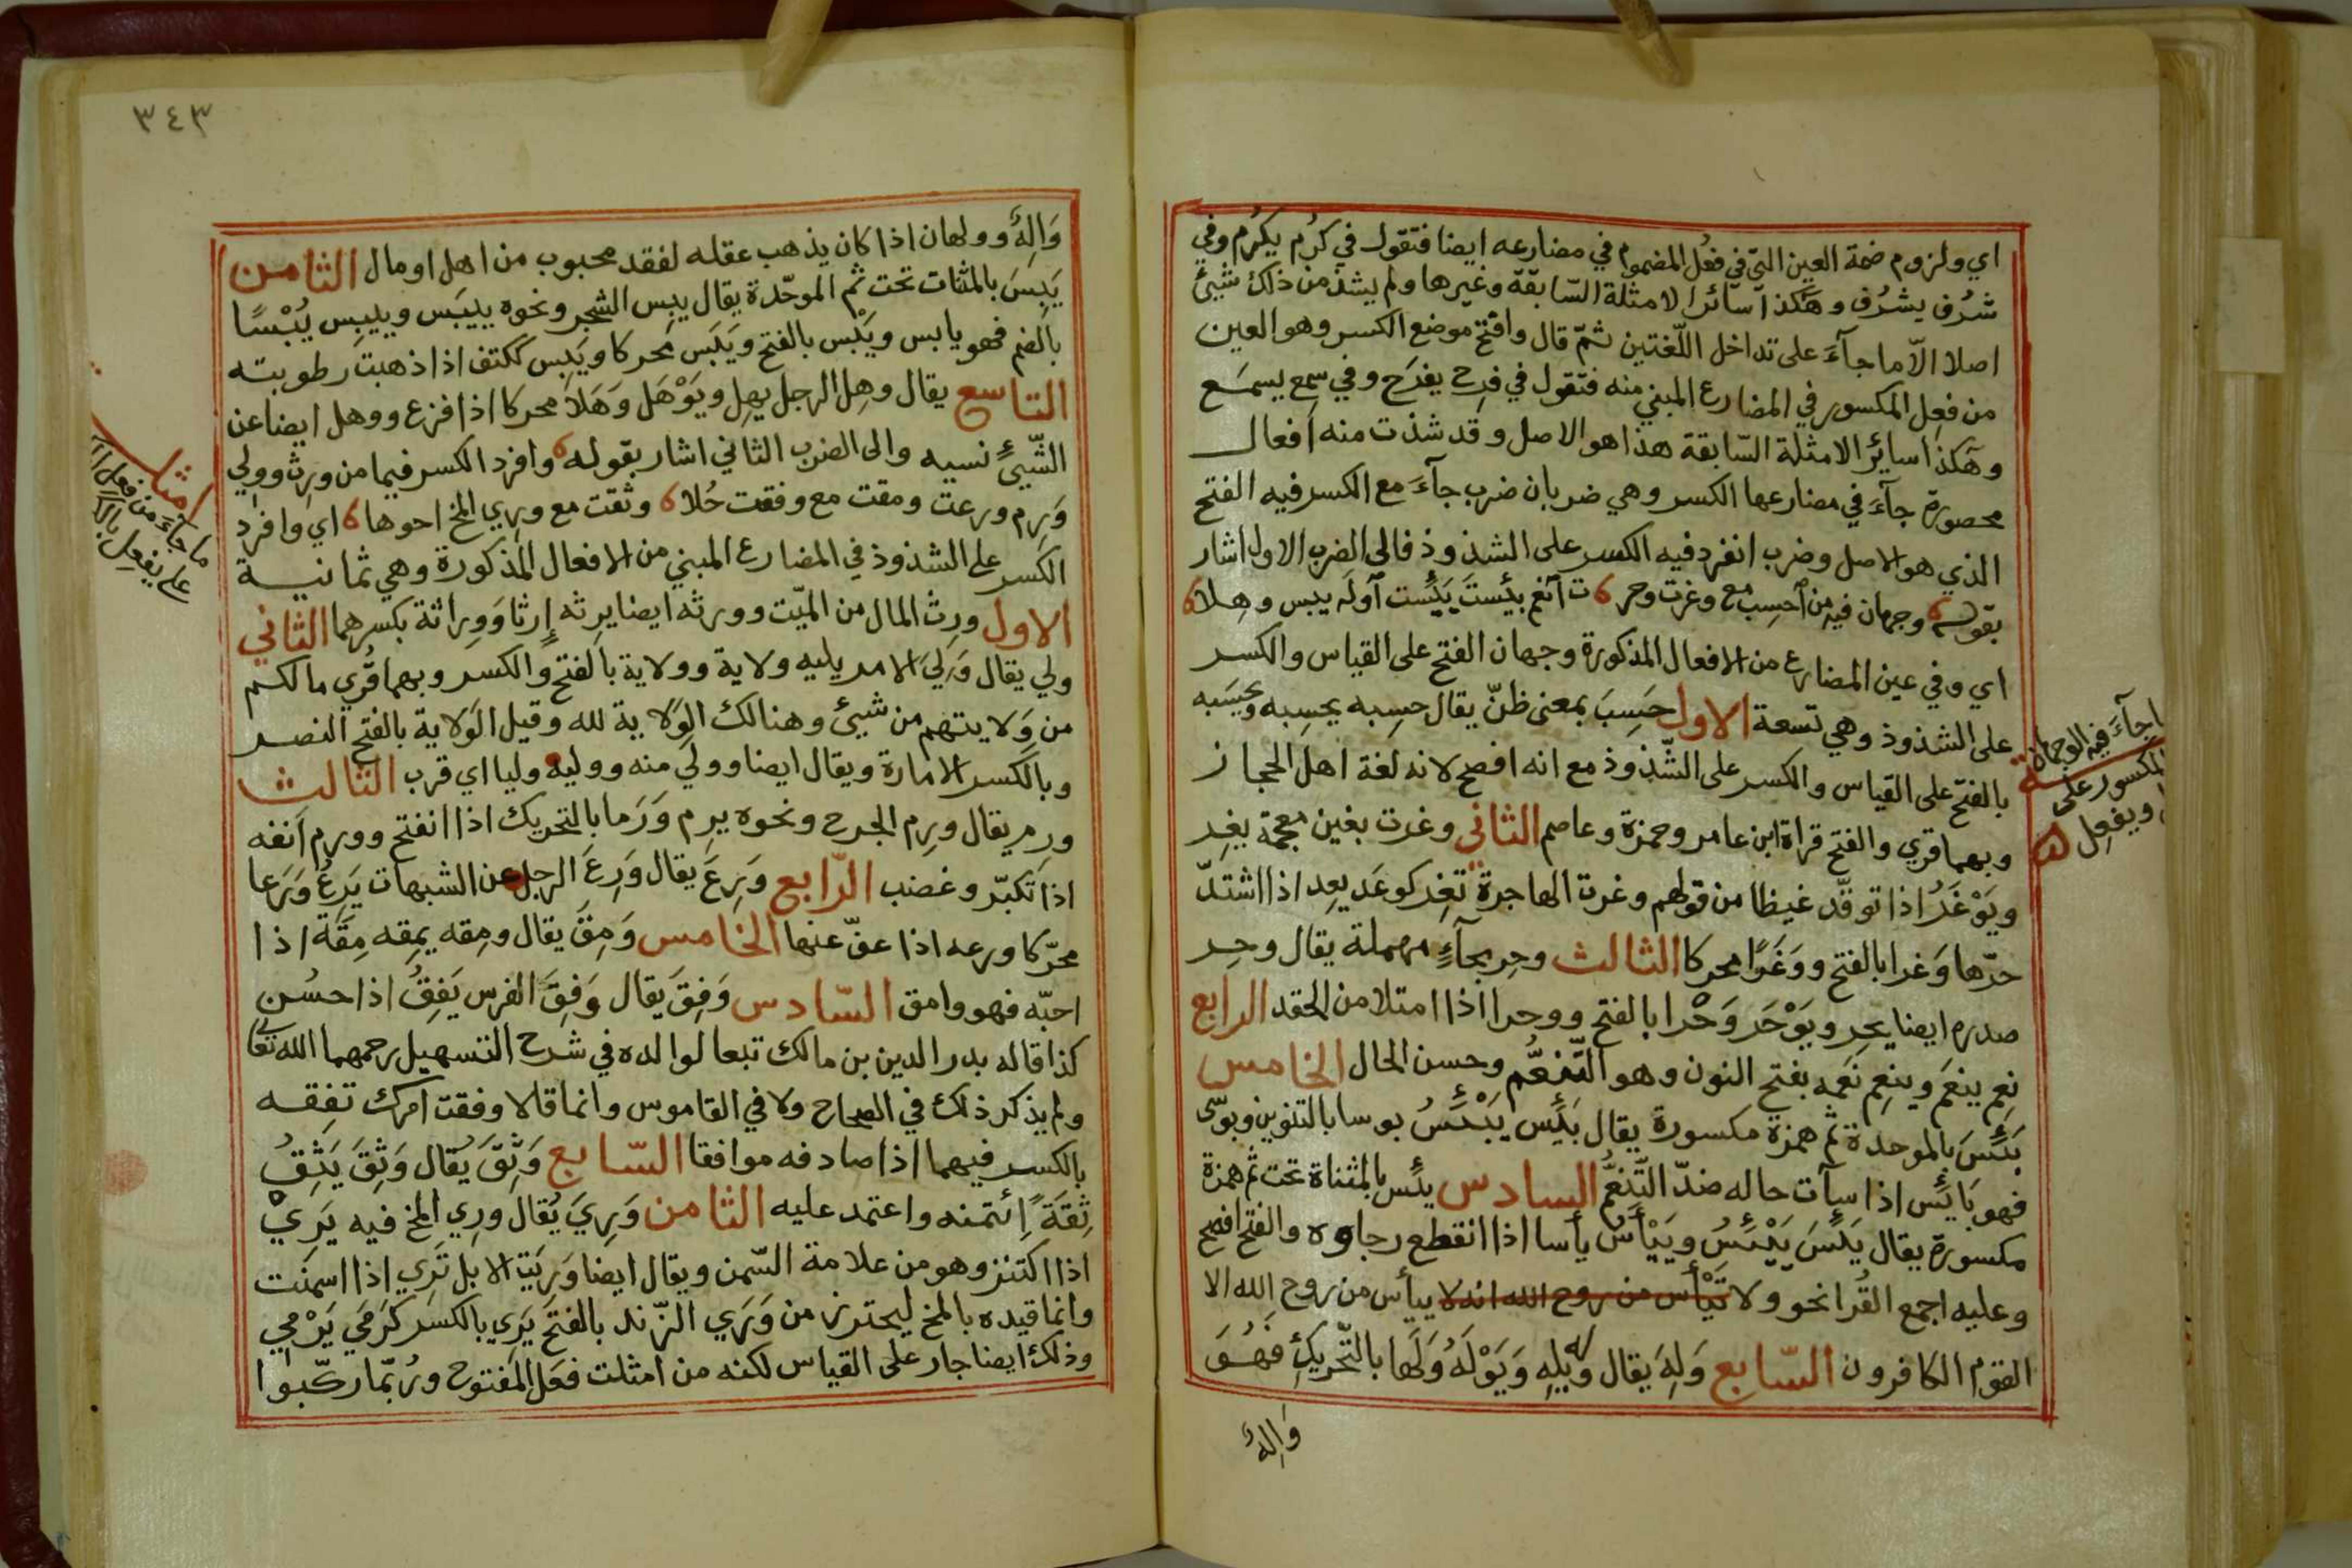 اي ولزوم ضمة العين التي في فعُل المضموم في مضارعه ايضا فتقول في كرُم يكرُم وفي
شرُف يشرُف وهكذا سائر الامثلة السّابقة وغيرها ولم يشذ من ذلك شيئ
اصلا الاّ ما جآءَ على تداخل اللّغتين ثمّ قال وافتح موضع الكسر وهو العين
من فعِل المكسور في المضارع المبني منه فتقول في فرِح يفرَح وفي سمِع يسمَع
وهكذا سائر الامثلة السّابقة هذا هو الاصل وقد شذت منه افعال
محصورة جآءَ في مضارعها الكسر وهي ضربان ضرب جآءَ مع الكسر فيه الفتح
الذي هو الاصل وضرب انفرد فيه الكسر على الشذوذ فالى الضرب الاول اشار
بقوله وجهان فيه من احسِب مع وغرت وحر ت انعم بئست يئست اوله يبس وهلا
اي وفي عين المضارع من الافعال المذكورة وجهان الفتح على القياس والكسر
على الشذوذ وهي تسعة الاول حَسِبَ بمعنى ظنّ يقال حسِبه يحسِبه ويحسَبه
بالفتح على القياس والكسر على الشّذوذ مع انه افصح لانه لغة اهل الحجاز
وبهما قري والفتح قراة ابن عامر وحمزة وعاصم الثاني وغرت بغين معجمة يغِر
ويَوْغَرُ اذا توقّد غيظا من قولهم وغرت الهاجرة تغِر كوعَد يعِد اذا اشتدّ
حرّها وَغرا بالفتح ووَغَرًا محركا الثالث وحِر بحآءٍ مهملة يقال وحِر
صدره ايضا يحِر ويَوْحَر وَحْرا بالفتح ووحرا اذا امتلا من الحقد الرابع
نعِم ينعَم وينعِم نَعمه بفتح النون وهو التّنعُّم وحسن الحال الخامس
بَئِسَ بالموحدة ثم همزة مكسورة يقال بَئِس يَبْئَسُ بوسا بالتنوين وبوسَى
فهو بَايَس اذا سآت حاله ضدّ التَّنعُّم السادس يئس بالمثناة تحت ثم همزة
مكسورة يقال يَئِسَ يَيْئِسُ ويَيْأَسُ يأسا اذا انقطع رجاوه والفتح افصح
وعليه اجمع القُرا نحو ولا تَيْأس من روح الله انه لا ييأس من روح الله الا
القوم الكافرون السّابع وَلِهَ يقال وله يلِهِ وَيَوْلَهُ وَلَها بالتّحريكِ فَهُوَ
وَالِهٌ
جآءَ فيه الوجهان
المكسور على
ويفعِل
٣٤٣
وَالِهٌ وولهان اذا كان يذهب عقله لفقد محبوب من اهل او مال الثامن
يَبِسَ بالمثات تحت ثم الموحّدة يقال يبِس الشجر ونحوه ييبَس وييبِس يُبْسًا
بالضم فهو يابس ويَبْس بالفتح ويَبَس محركا ويَبِس ككتف اذا ذهبت رطوبته
التاسع يقال وهِل الرجل يهِل ويَوْهَل وَهَلاً محركا اذا فزع ووهل ايضا عن
الشّيئ نسيه والى الضرب الثاني اشار بقوله وافرد الكسر فيما من ورِث وولي
وَرِم ورعت ومقت مع وفقت حُلا وثقت مع وري المخ احوها اي وافرد
الكسر على الشذوذ في المضارع المبني من الافعال المذكورة وهي ثمانية
الاول ورِث المال من الميّت وورثه ايضا يرِثه إرثا وَوِراثة بكسرهما الثاني
ولي يقال وَلِيَ الامر يليه ولاية وولاية بالفتح والكسر وبهما قُري ما لكم
من وَلايتهم من شيئ وهنالك الوَلاية لله وقيل الوَلاية بالفتح النصر
وبالكسر الامارة ويقال ايضا وولي منه ووليه وليا اي قرب الثالث
ورِم يقال ورِم الجرح ونحوه يرِم وَرَما بالتحريك اذا انفتح وورم اَنفه
اذا تكبّر وغضب الرّابع وَرِعَ يقال وَرِعَ الرجل عن الشبهات يَرِعُ وَرَعا
محرّكا ورعه اذا عفّ عنها الخامس وَمِقَ يقال ومِقه يمِقه مِقَةً اذا
احبّه فهو وامق السّادس وَفِقَ يقال وَفِقَ الفرس يَفِقُ اذا حسُن
كذا قاله بدر الدين بن مالك تبعا لوالده في شرح التسهيل رحمهما الله تعا
ولم يذكر ذلك في الصحاح ولا في القاموس وانما قالا وفقت امرك تفِقه
بالكسر فيهما اذا صادفه موافقا السّابع وَثِقَ يُقال وَثِقَ يَثِقُ
ثِقَةً ائتمنه واعتمد عليه الثامن وَرِيَ يُقال ورِي المخ فيه يَرِيْ
اذا اكتنز وهو من علامة السّمن ويقال ايضا وَرِيَت الابل تَرِي اذا اسمنت
وانما قيده بالمخ ليحترز من وَرَي الزّند بالفتح يَرِي بالكسر كرَمَي يَرْمِي
وذلك ايضا جار على القياس لكنه من امثلت فعَل المفتوح ورُبّما ركّبوا
امثلـ
ما جآءَ من فعِل
على يفعِل بالكسر